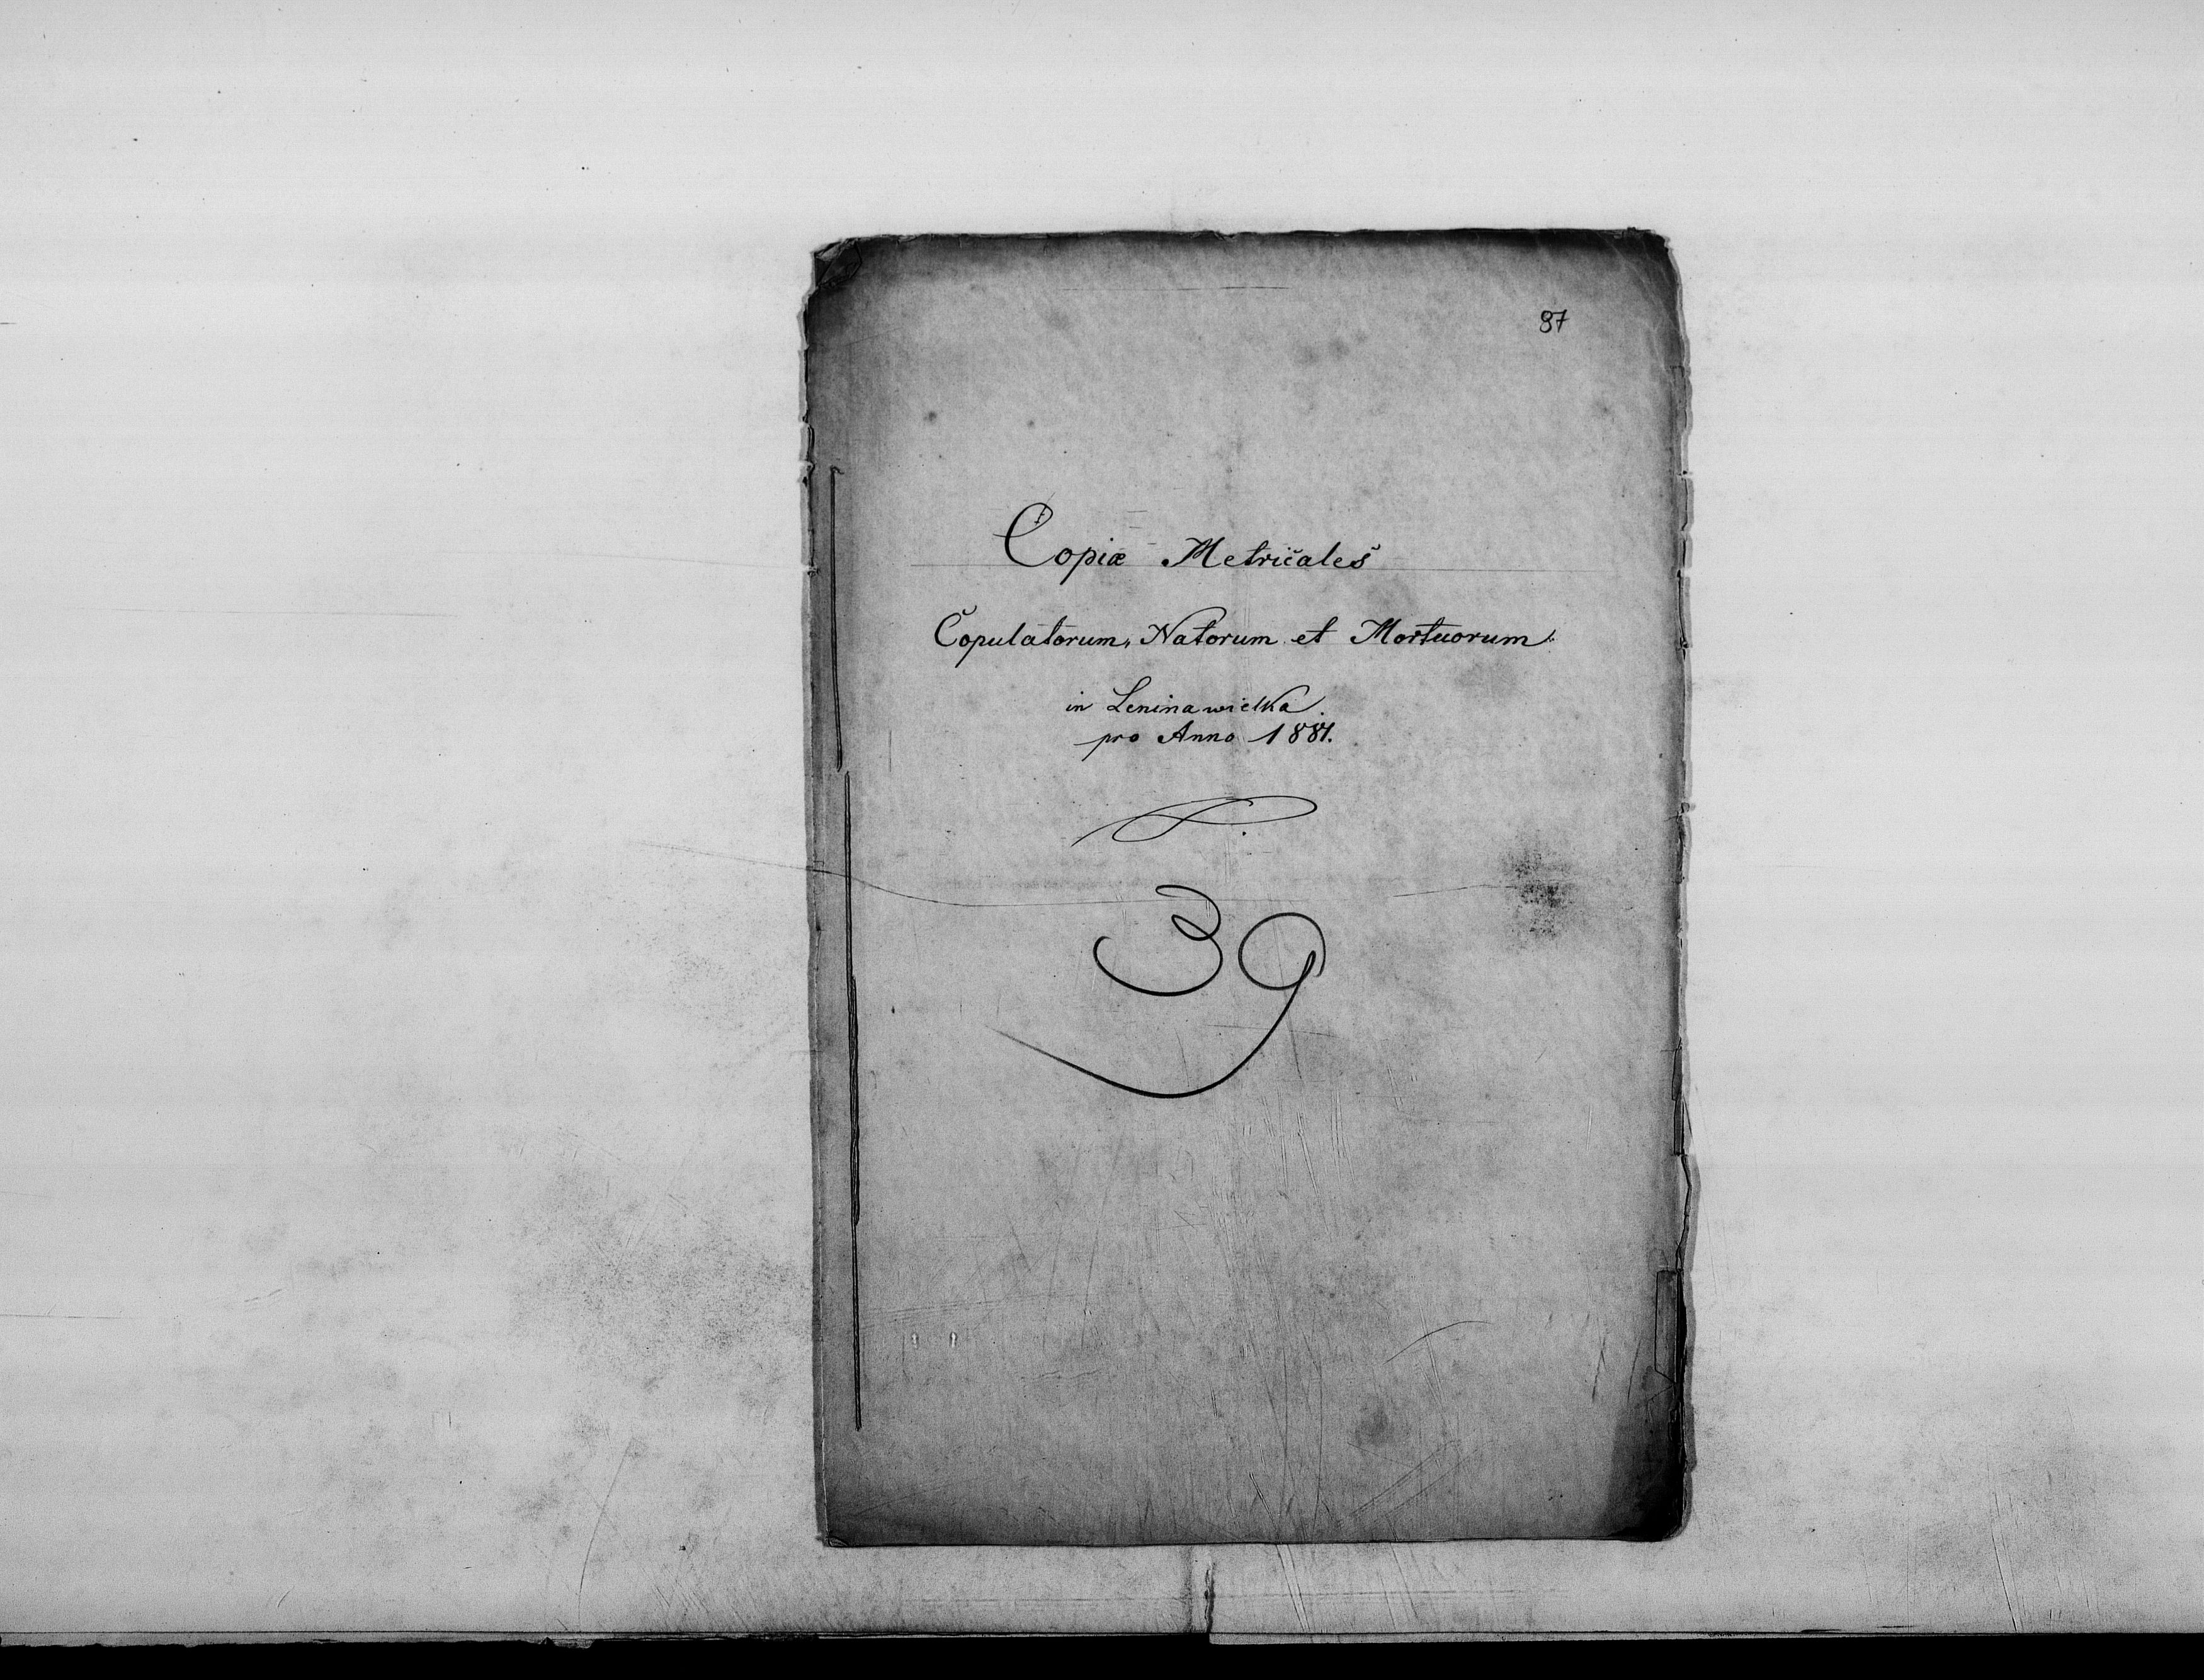 97
Copiæ Metricales
Copulatorum, Natorum et Mortuorum
in Leninawielka
pro Anno 1881.
39